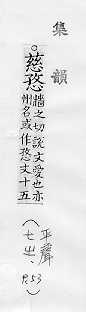 集韻
○慈㤵
牆之切說文愛也亦
州名或作㤵文十五
(平聲
七之、
P.53)